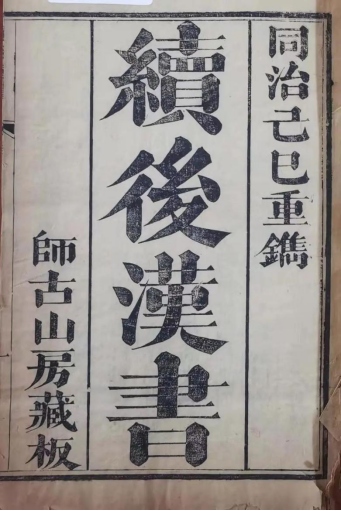 同治己巳重鐫
續後漢書
師古山房藏板